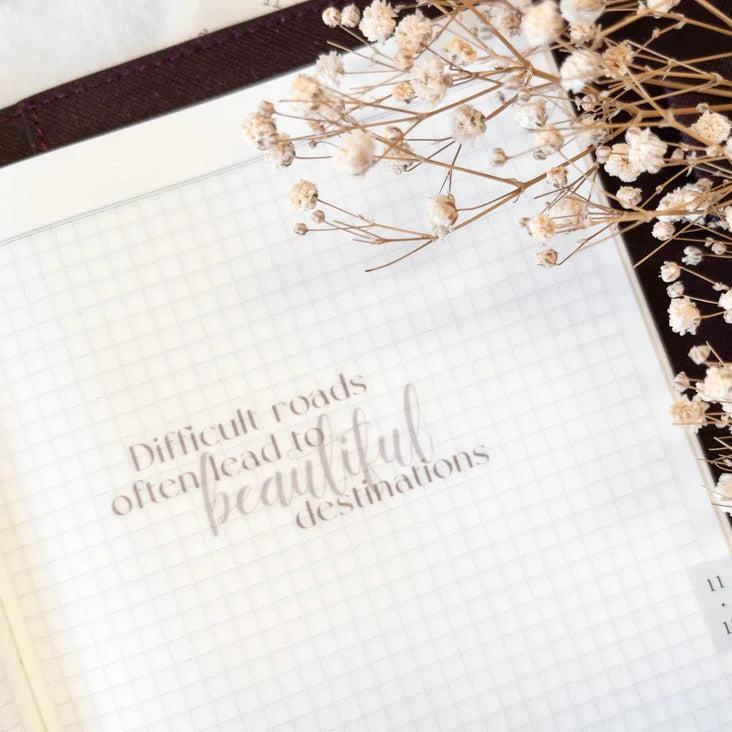 Difficult roads
often lead to
beautiful
destinations
11